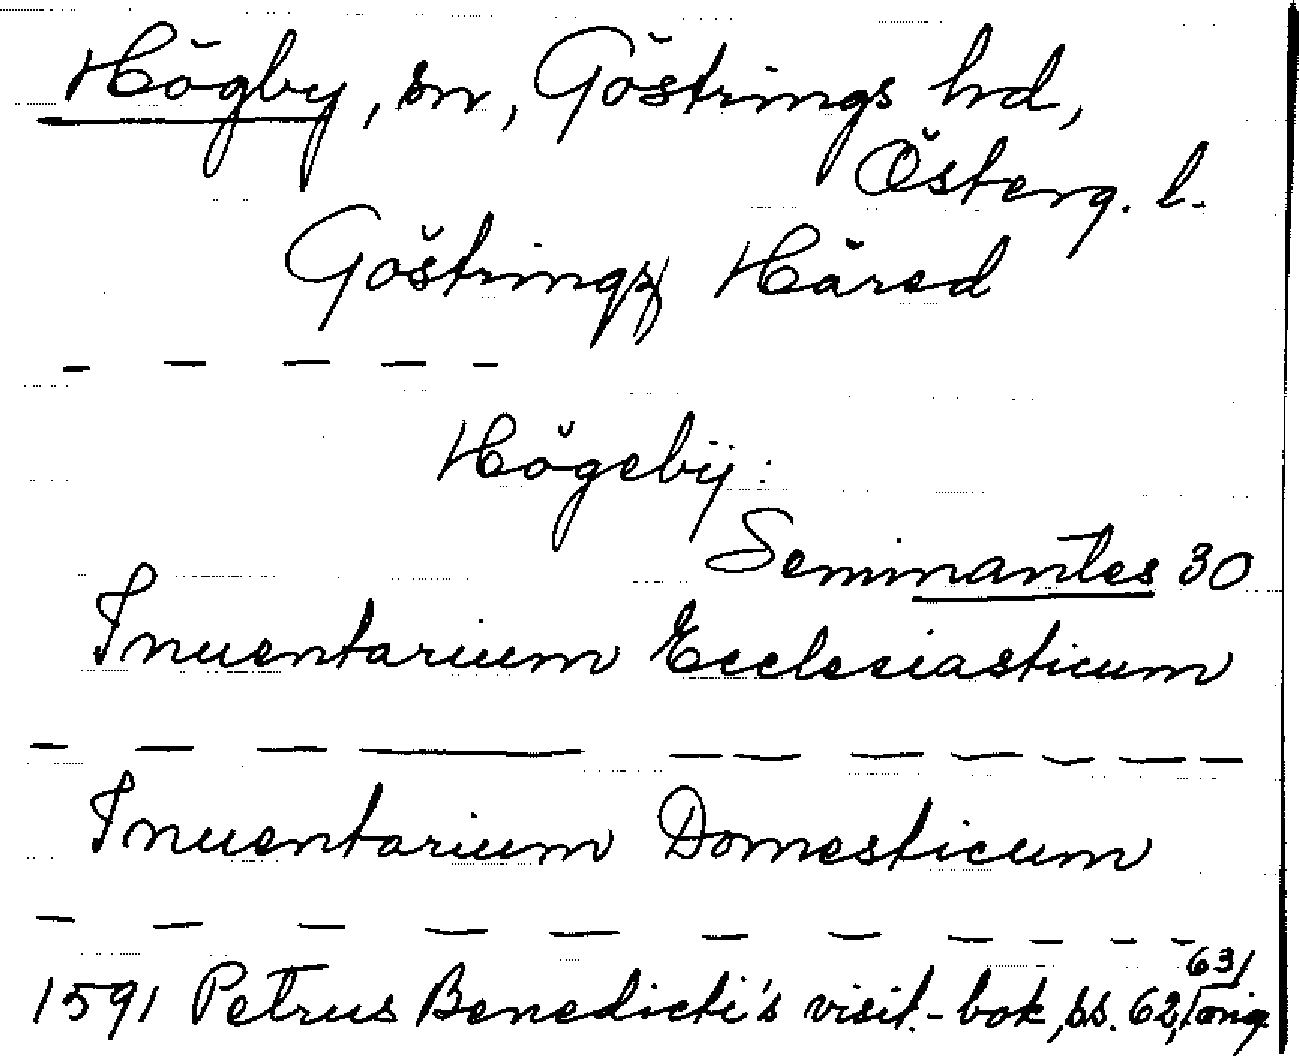 Högby, sn, Göstrings hd,
Österg. l.
Göstringz Häred
- - - - -
Högebÿ:
Seminantes 30
Inuentarium Ecclesiasticum
- - - - - - - - - - -
Inuentarium Domesticum
- - - - - - - - - - -
1591 Petrus Benedicti's visit.-bok, ss. 62, 63, orig